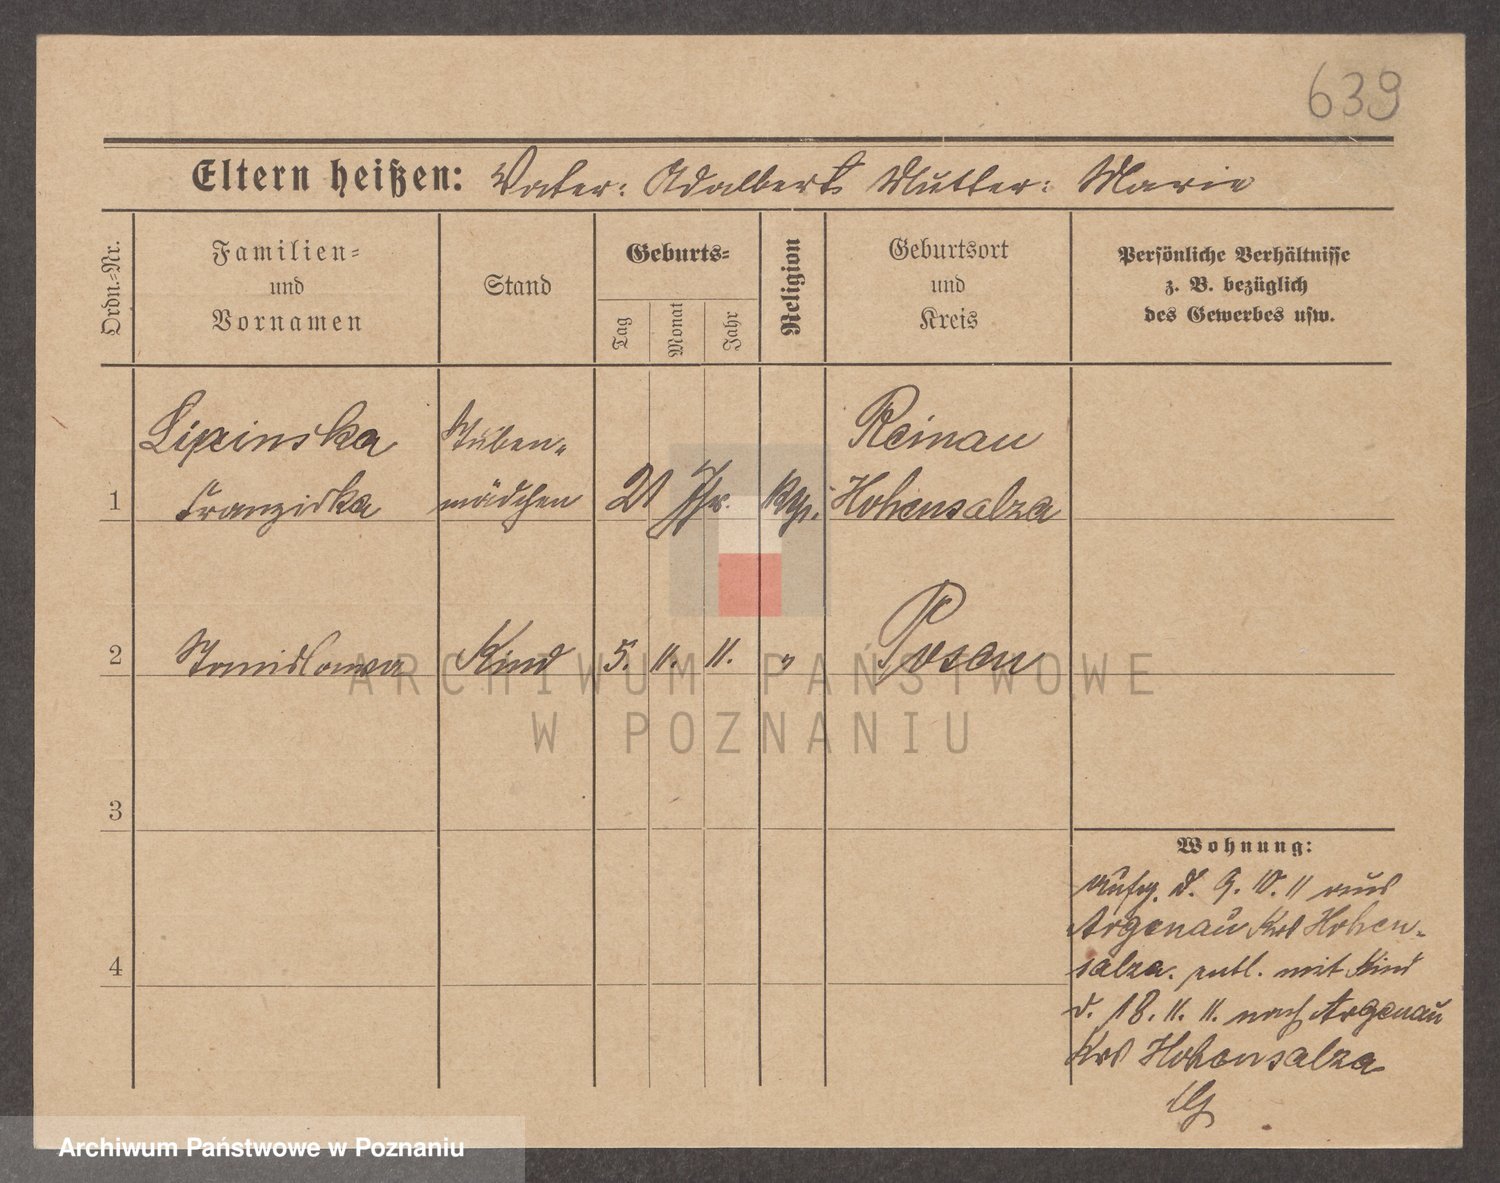 639
Eltern heißen: Vater: Adalbert Mutter: Marie
Ordn.=Nr.
Familien=
und
Vornamen
Stand
Geburts=
Tag
Monat
Jahr
Religion
Geburtsort
und
Kreis
Persönliche Verhältnisse
z. B. bezüglich
des Gewerbes usw.
Lipinska Stuben- Reinau
1 Franziska mädchen 21 Jhr. Hohensalza
2 Stanislawa Kind 5. 11. 11. " Posen
3
4
Wohnung:
Aufg. d. 9. 10. 11 aus
Argenau Krs Hohen-
salza. entl. mit Kind
d. 18. 11. 11. nach Argenau
Krs Hohensalza
ARCHIWUM PAŃSTWOWE
W POZNANIU
Archiwum Państwowe w Poznaniu